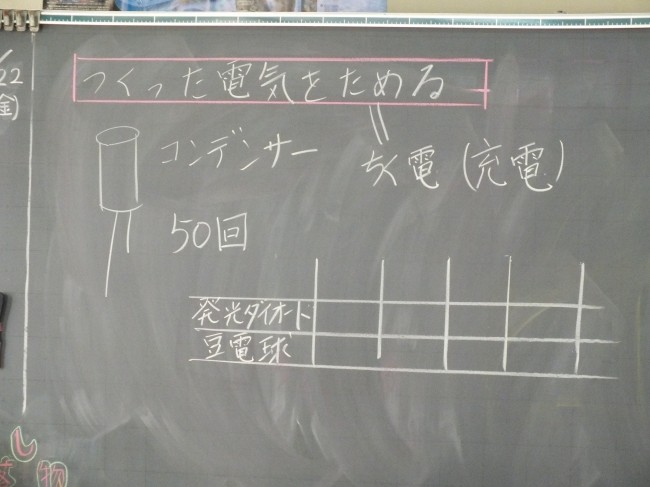 22
(金)
つくった電気をためる
コンデンサー
ちく電(充電)
50回
発光ダイオード
豆電球
し
物